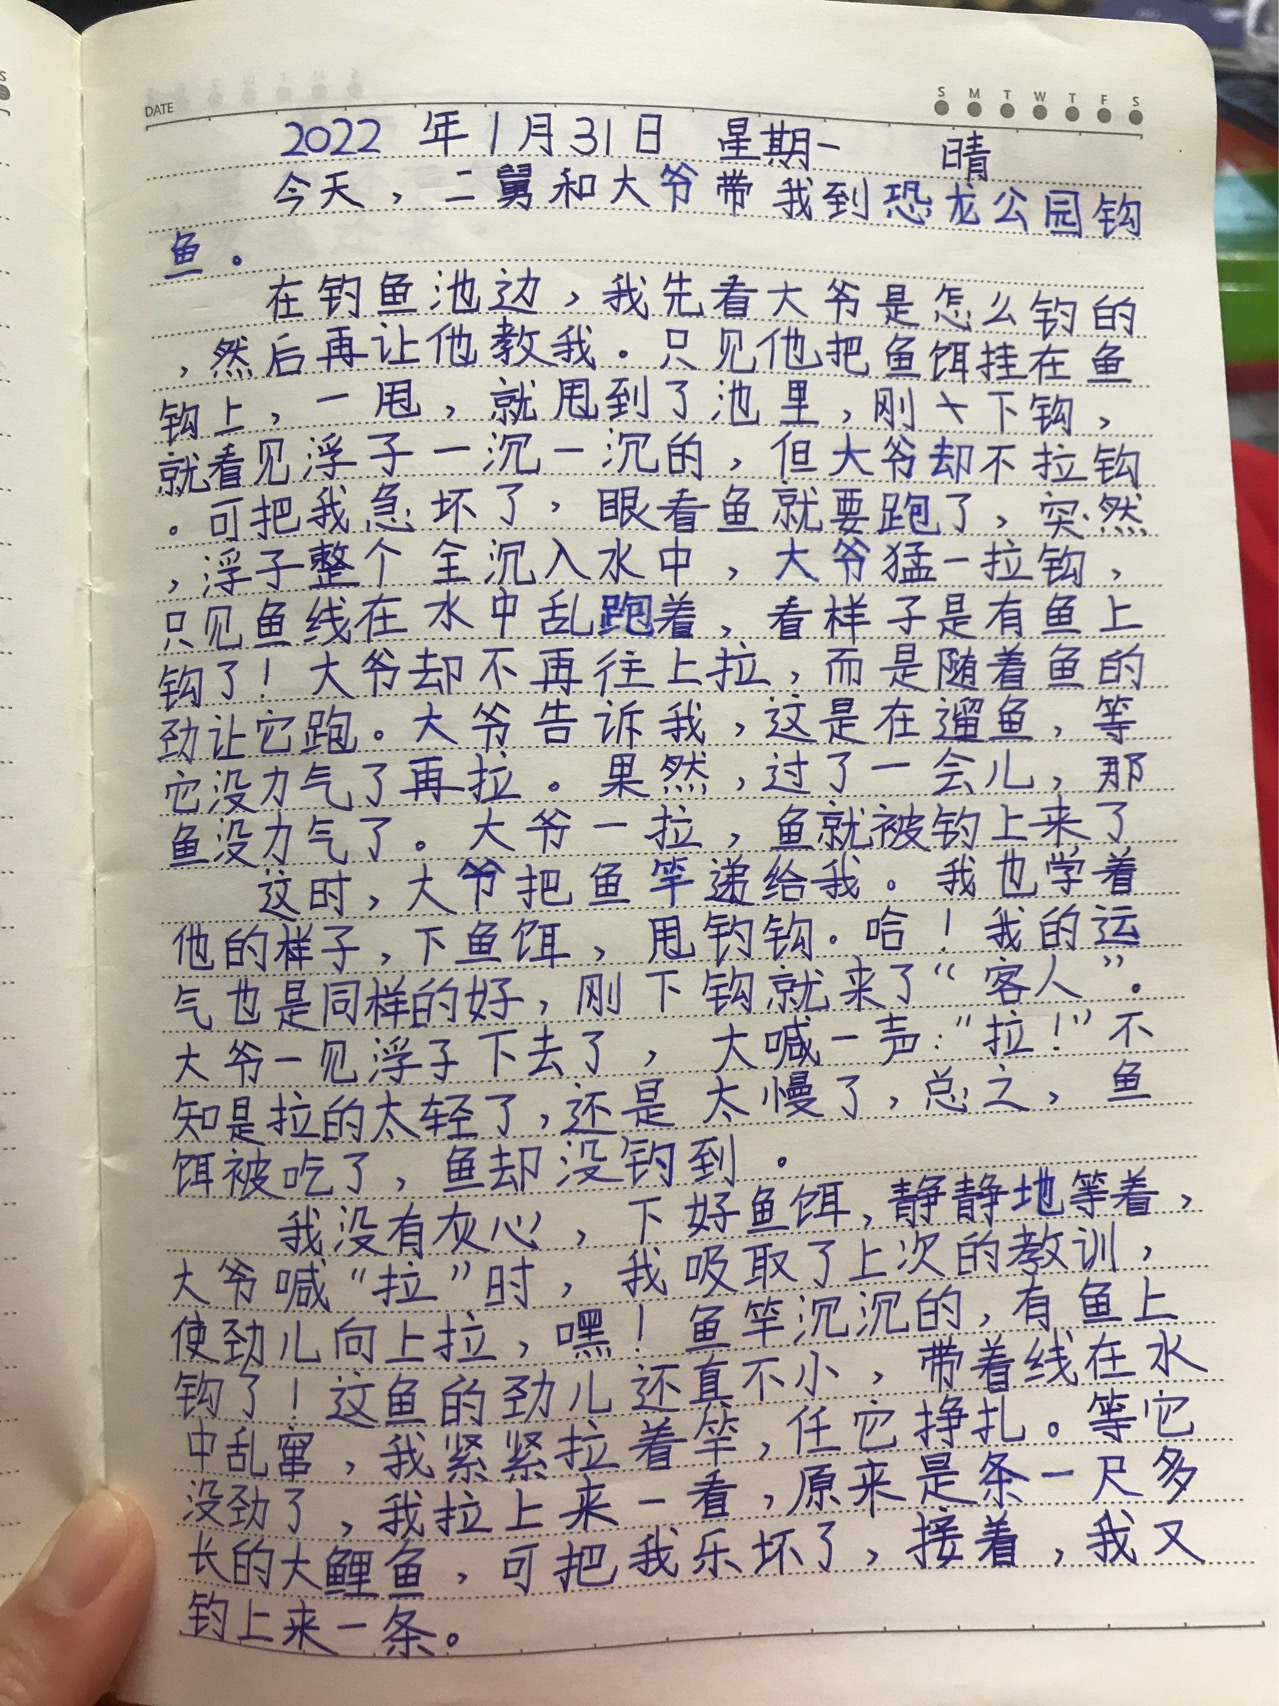 DATE
S M T W T F S
2022 年1月31日 星期一 晴
今天，二舅和大爷带我到恐龙公园钩
鱼。
在钓鱼池边，我先看大爷是怎么钓的
，然后再让他教我。只见他把鱼饵挂在鱼
钩上，一甩，就甩到了池里，刚下钩，
就看见浮子一沉一沉的，但大爷却不拉钩
。可把我急坏了，眼看鱼就要跑了，突然
，浮子整个全沉入水中，大爷猛一拉钩，
只见鱼线在水中乱跑着，看样子是有鱼上
钩了！大爷却不再往上拉，而是随着鱼的
劲让它跑。大爷告诉我，这是在遛鱼，等
它没力气了再拉。果然，过了一会儿，那
鱼没力气了。大爷一拉，鱼就被钓上来了
这时，大爷把鱼竿递给我。我也学着
他的样子，下鱼饵，甩钓钩。哈！我的运
气也是同样的好，刚下钩就来了“客人”。
大爷一见浮子下去了，大喊一声：“拉！”不
知是拉的太轻了，还是太慢了，总之，鱼
饵被吃了，鱼却没钓到。
我没有灰心，下好鱼饵，静静地等着，
大爷喊“拉”时，我吸取了上次的教训，
使劲儿向上拉，嘿！鱼竿沉沉的，有鱼上
钩了！这鱼的劲儿还真不小，带着线在水
中乱窜，我紧紧拉着竿，任它挣扎。等它
没劲了，我拉上来一看，原来是条一尺多
长的大鲤鱼，可把我乐坏了，接着，我又
钓上来一条。